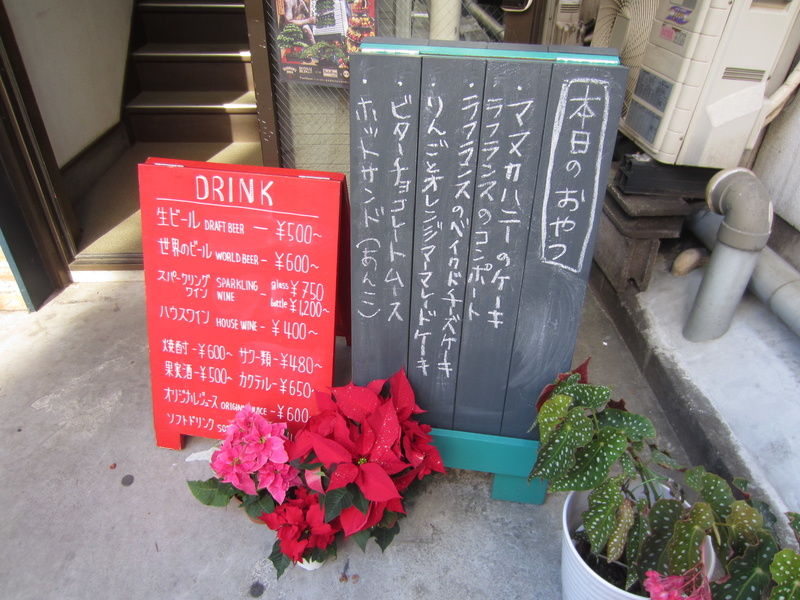 DRINK
生ビール DRAFT BEER — ¥500~
世界のビール WORLD BEER - ¥600~
スパークリングワイン SPARKLING WINE - glass ¥750 bottle ¥1,200~
ハウスワイン HOUSE WINE - ¥400~
焼酎 - ¥600~ サワー類 - ¥480~
果実酒 - ¥500~ カクテル - ¥650~
オリジナルジュース ORIGINAL JUICE - ¥600
ソフトドリンク
本日のおやつ
・マヌカハニーのケーキ
ラフランスのコンポート
・ラフランスのベイクドチーズケーキ
・りんごとオレンジマーマレードケーキ
・ビターチョコレートムース
・ホットサンド(あんこ)